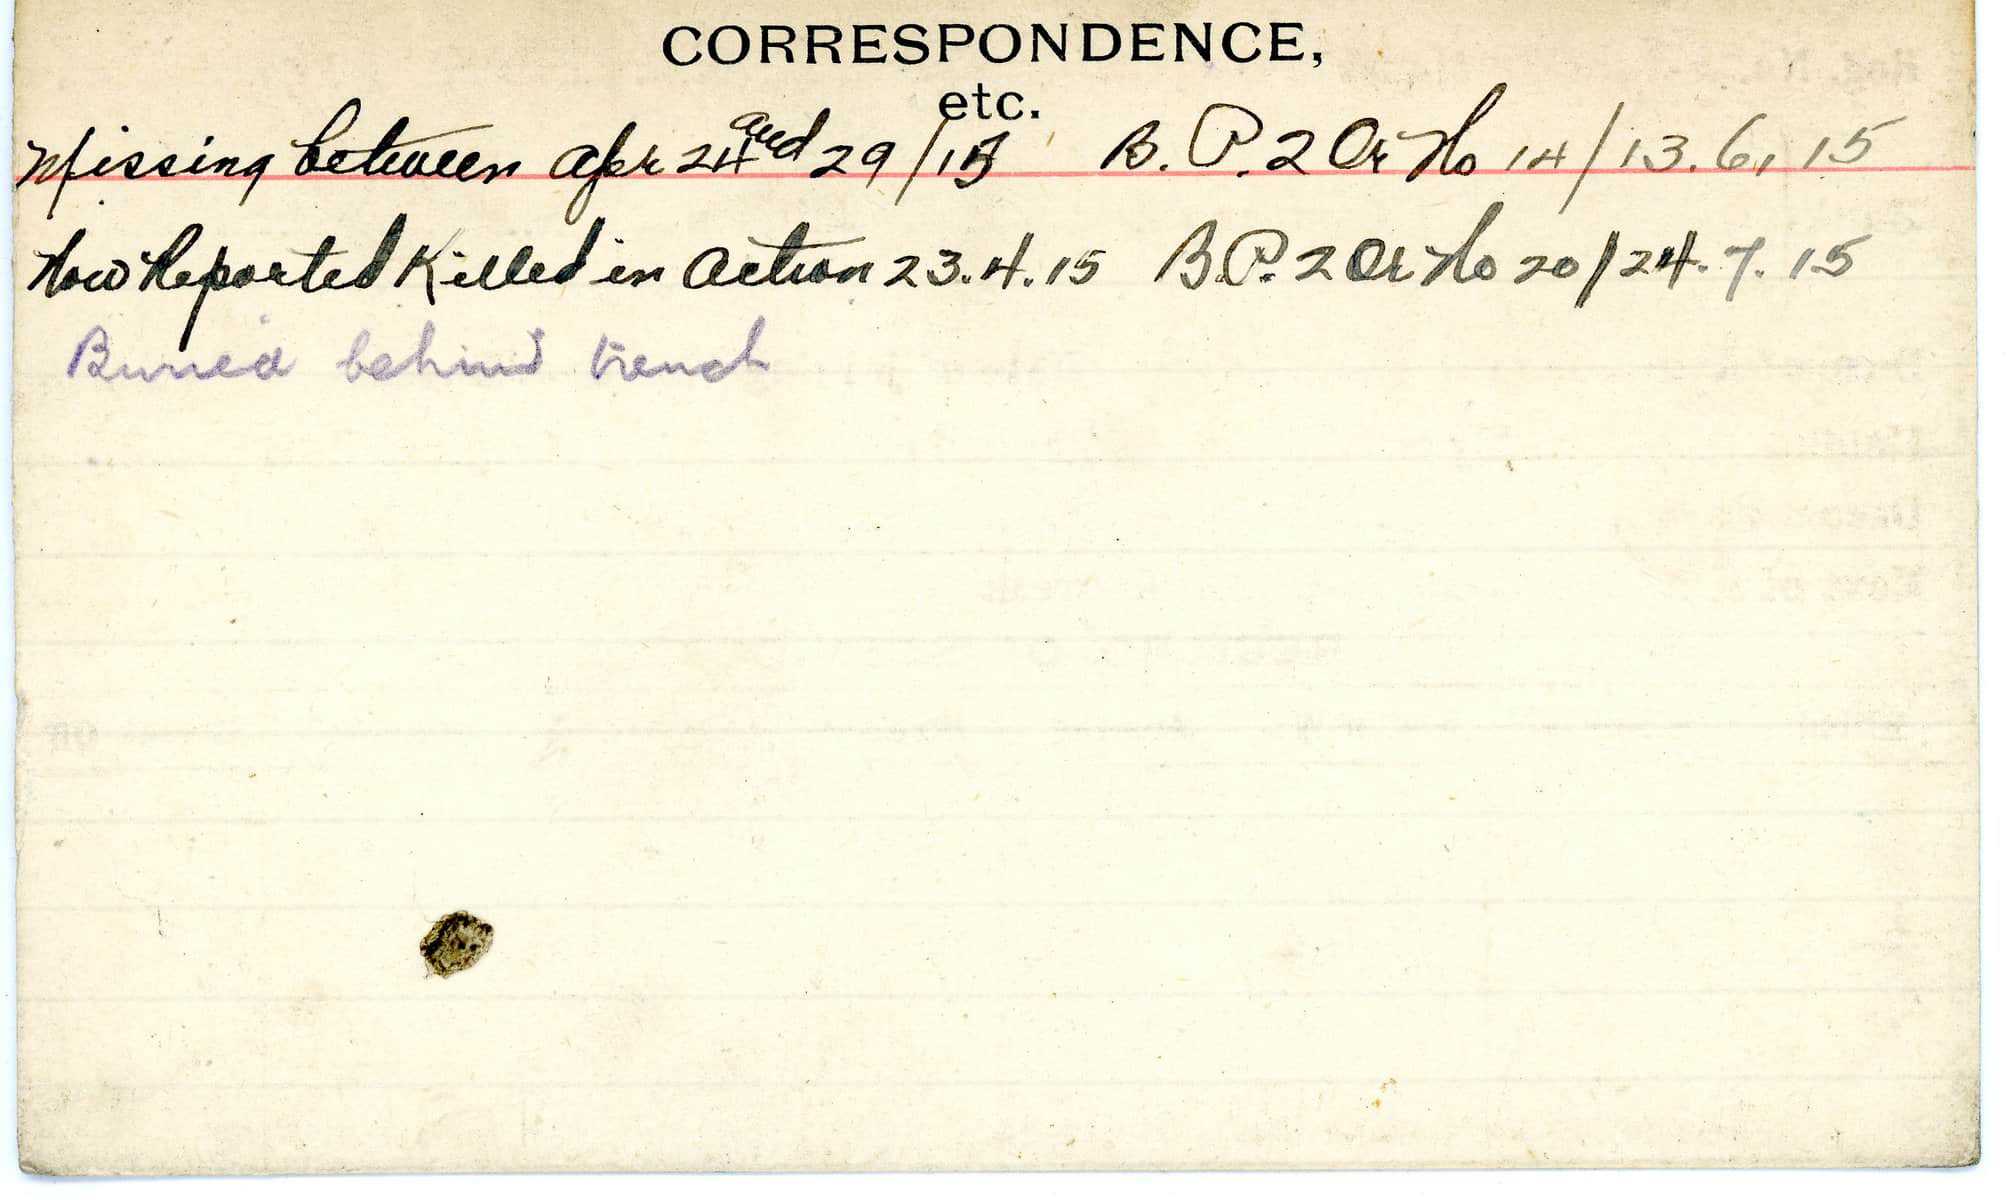 CORRESPONDENCE,
etc.
Missing between Apr 24 and 29/15 B. P. 2 Or No 14/13.6.15
Now Reported Killed in Action 23.4.15 B.P. 2 Or No 20/24.7.15
Buried behind trench